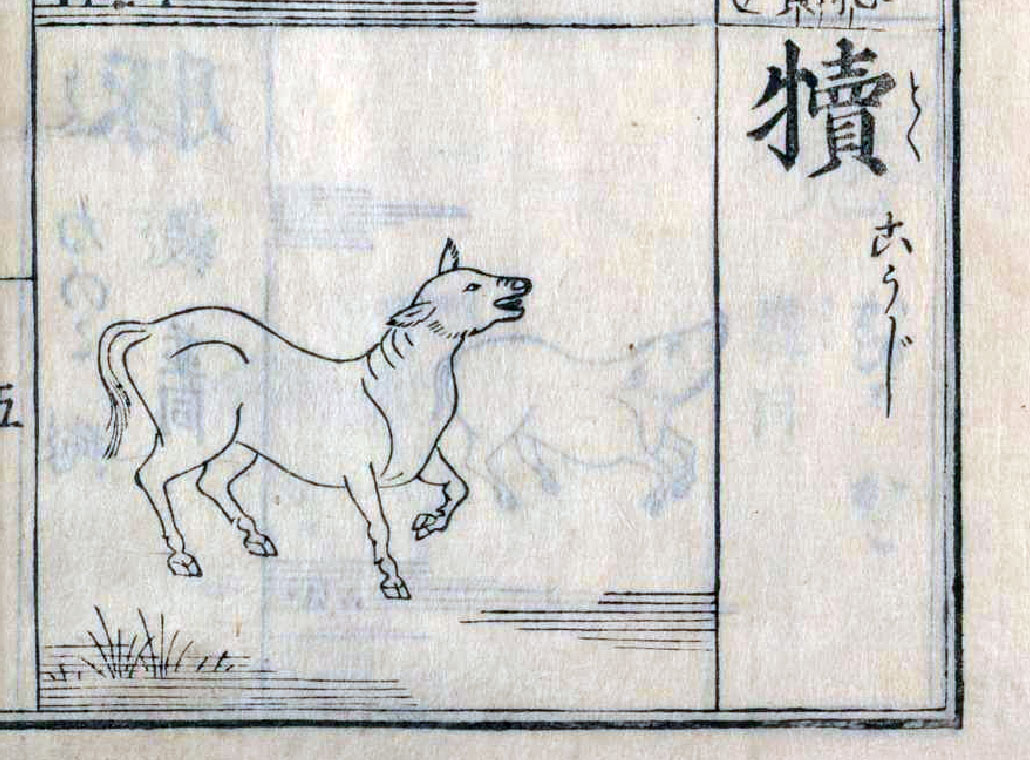 犢
とく
こうじ
五